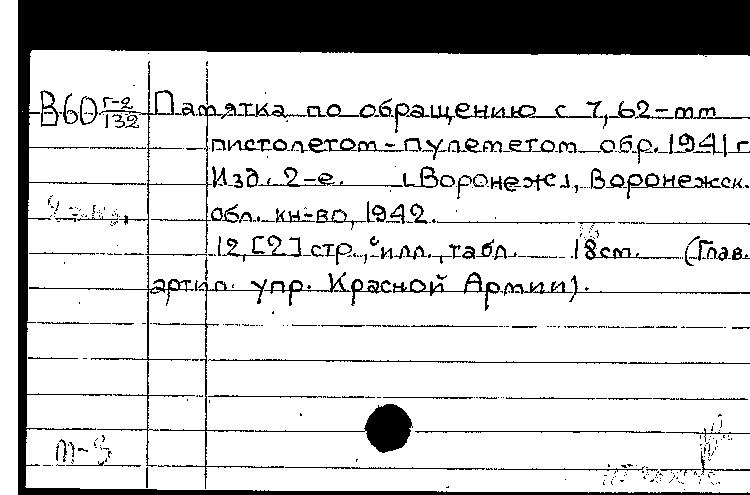 В60 Г-2/132 Памятка по обращению с 7,62-mm
пистолетом-пулеметом обр. 1941 г
Изд. 2-е. [Воронеж], Воронежск.
обл. кн-во, 1942.
12, [2] стр., с илл., табл. 18см. (Глав.
артил. упр. Красной Армии).
т-3